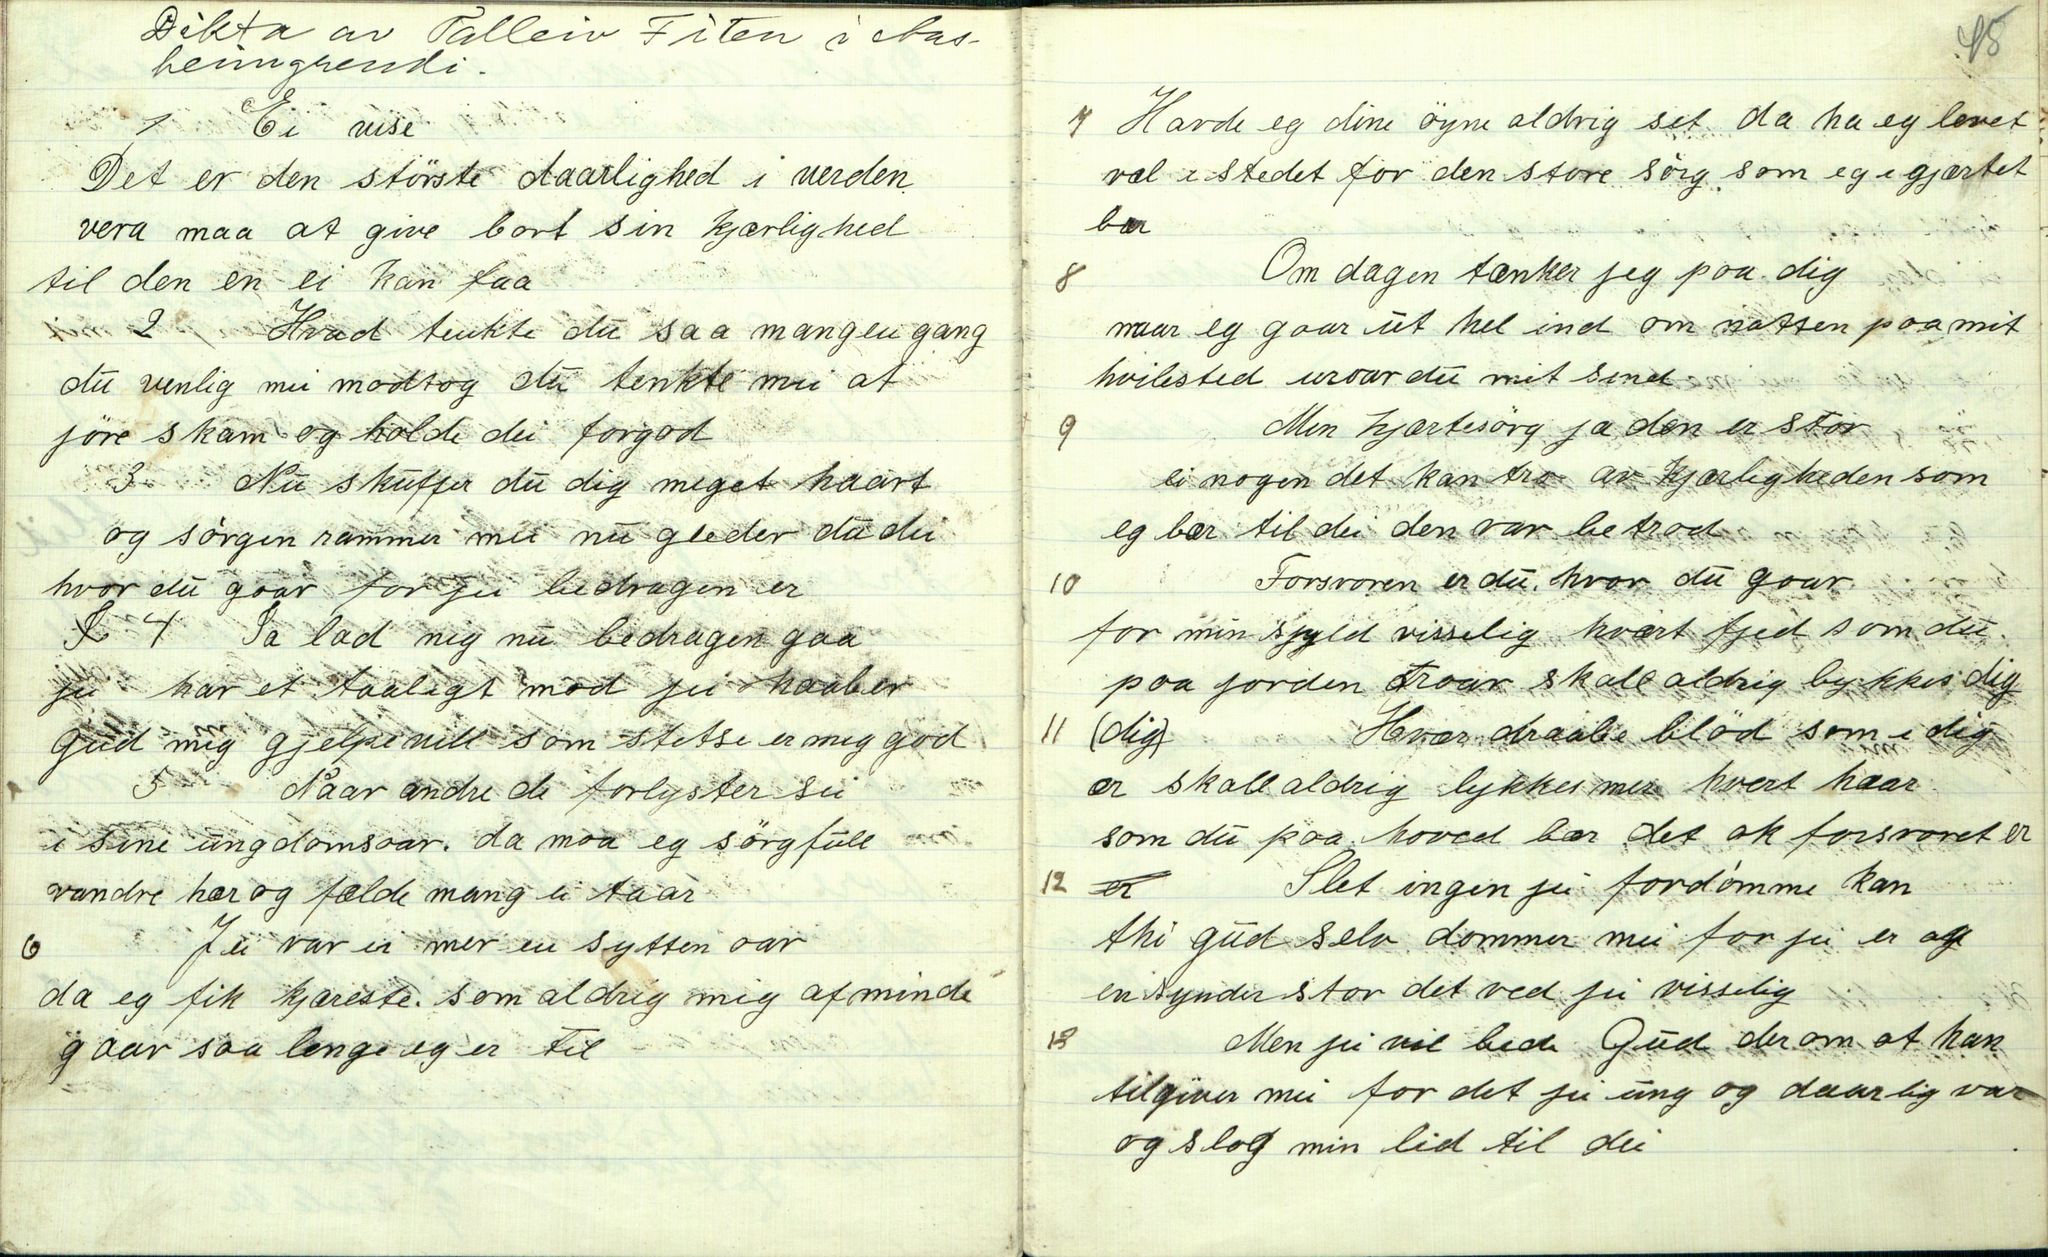 Dikta av Talleiv Fiten i Aas-
heimgrendi.
1 Ei vise
Det er den störste daarlighed i verden
vera maa at give bort sin kjærlighed
til den en ei kan faa
2 Hvad tenkte du saa mangen gang
du venlig mei modtog du tenkte mei at
jöre skam og holde dei forgod
3 Nu skuffer du dig meget haart
og sörgen rammer mei nu gleder du dei
hvor du gaar for jei bedragen er
4 Ja lad mig nu bedragen gaa
jei har et taaligt mod jei haaber
gud mig gjelpe vill som stetse er mig god
5 Naar andre de forlyster sei
i sine ungdomsaar. da maa eg sörgfull
vandre her og fælde mang ei taar
6 Jei var ei mer en sytten aar
da eg fik kjæreste. som aldrig mig af minde
gaar saa lenge eg er til
45
7 Havde eg dine öyne aldrig set da ha eg levet
vel i stedet for den store sörg som eg i gjærtet
bær
8 Om dagen tænker jeg paa dig
naar eg gaar ut hel ind om natten paa mit
hvilested uroar du mit sind
9 Min hjærtesörg ja den er stor
ei nogen det kan tro av kjærligheden som
eg bær til dei den var betrod
10 Forsvoren er du hvor du gaar
for min skyld visselig hvært fjed som du
paa jorden troar skall aldrig lykkes dig
11 (dig) Hvær draabe blöd som i dig
er skall aldrig lykkes mer hvert haar
som du paa hoved bær det ok forsvoret er
12 er Slet ingen jei fordömme kan
thi gud selv dommer mei for jei er og
en synder stor det ved jei visselig
13 Men jei vil bede Gud derom at han
tilgiver mei for det jei ung og daarlig var
og slog min lid til dei